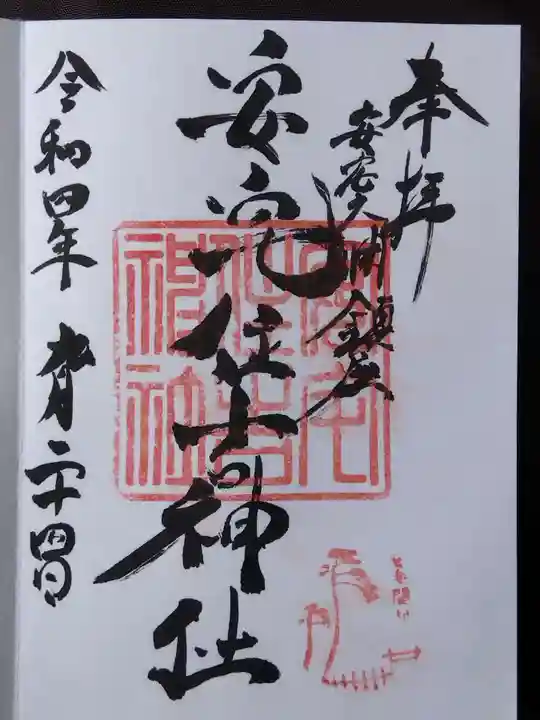 奉拝
安宅関鎮座
安宅住吉神社
令和四年 九月二十四日
安宅住吉神社